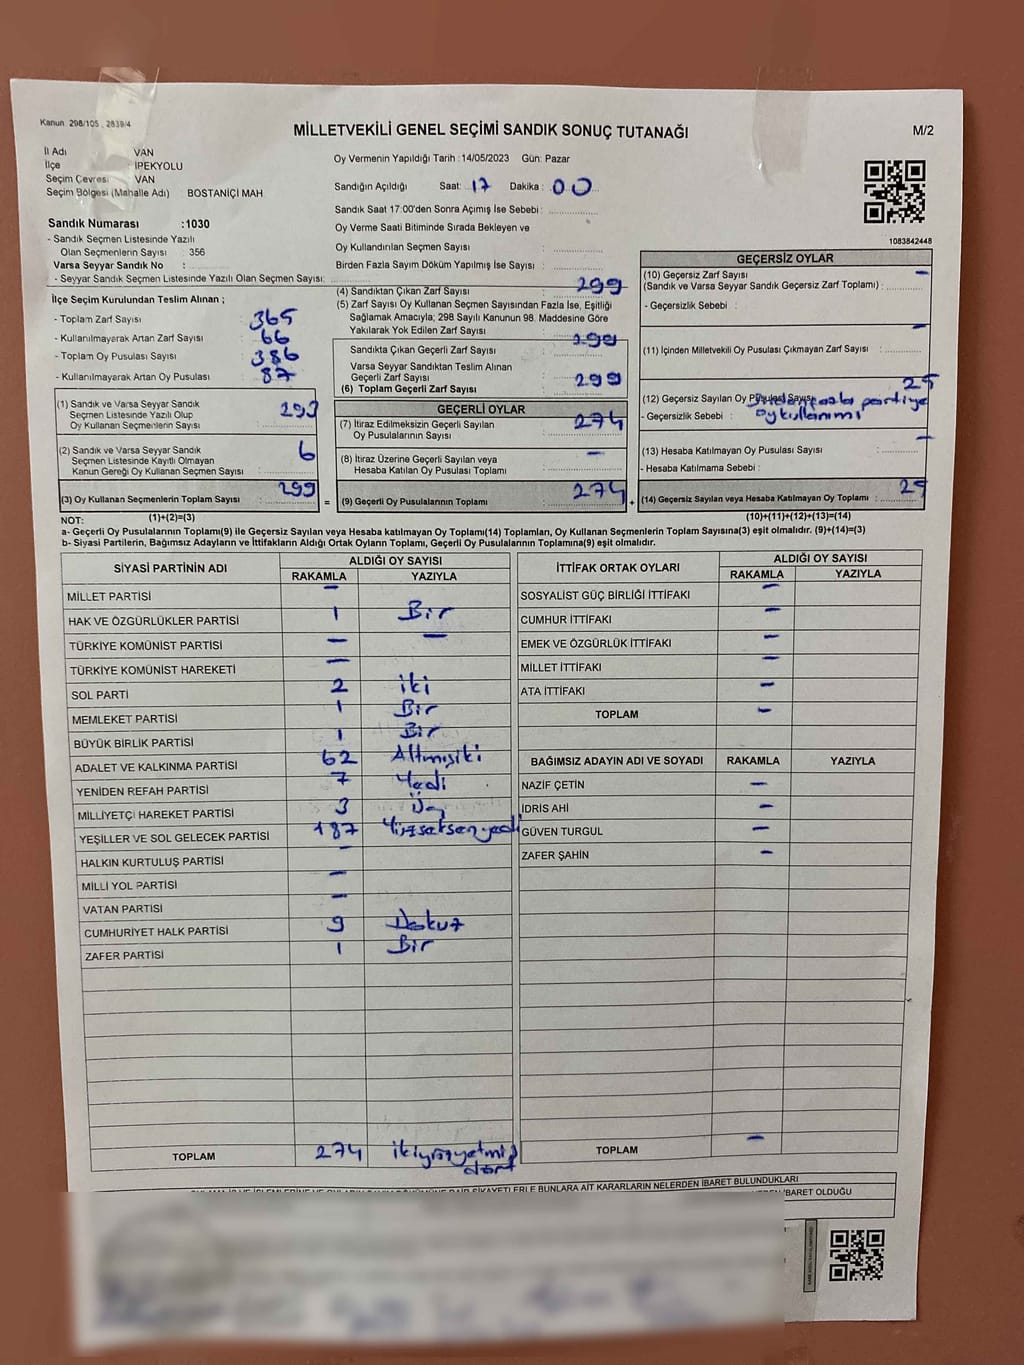 Kanun 298/105 , 2839/4
MİLLETVEKİLİ GENEL SEÇİMİ SANDIK SONUÇ TUTANAĞI
M/2
İl Adı : VAN
İlçe : İPEKYOLU
Seçim Çevresi : VAN
Seçim Bölgesi (Mahalle Adı) BOSTANİÇİ MAH
Oy Vermenin Yapıldığı Tarih : 14/05/2023 Gün: Pazar
Sandığın Açıldığı Saat: 17 Dakika : 00
Sandık Saat 17:00'den Sonra Açımış İse Sebebi :
Oy Verme Saati Bitiminde Sırada Bekleyen ve
Oy Kullandırılan Seçmen Sayısı :
Birden Fazla Sayım Döküm Yapılmış İse Sayısı :
1083842448
Sandık Numarası :1030
- Sandık Seçmen Listesinde Yazılı
Olan Seçmenlerin Sayısı : 356
Varsa Seyyar Sandık No :
- Seyyar Sandık Seçmen Listesinde Yazılı Olan Seçmen Sayısı:
İlçe Seçim Kurulundan Teslim Alınan ;
- Toplam Zarf Sayısı : 365
- Kullanılmayarak Artan Zarf Sayısı : 66
- Toplam Oy Pusulası Sayısı : 386
- Kullanılmayarak Artan Oy Pusulası : 87
(1) Sandık ve Varsa Seyyar Sandık
Seçmen Listesinde Yazılı Olup
Oy Kullanan Seçmenlerin Sayısı : 293
(2) Sandık ve Varsa Seyyar Sandık
Seçmen Listesinde Kayıtlı Olmayan
Kanun Gereği Oy Kullanan Seçmen Sayısı : 6
(3) Oy Kullanan Seçmenlerin Toplam Sayısı : 299
(1)+(2)=(3)
(4) Sandıktan Çıkan Zarf Sayısı : 299
(5) Zarf Sayısı Oy Kullanan Seçmen Sayısından Fazla İse, Eşitliği
Sağlamak Amacıyla; 298 Sayılı Kanunun 98. Maddesine Göre
Yakılarak Yok Edilen Zarf Sayısı :
Sandıkta Çıkan Geçerli Zarf Sayısı : 299
Varsa Seyyar Sandıktan Teslim Alınan
Geçerli Zarf Sayısı :
(6) Toplam Geçerli Zarf Sayısı : 299
GEÇERLİ OYLAR
(7) İtiraz Edilmeksizin Geçerli Sayılan
Oy Pusulasının Sayısı : 274
(8) İtiraz Üzerine Geçerli Sayılan veya
Hesaba Katılan Oy Pusulası Toplamı : -
= (9) Geçerli Oy Pusulalarının Toplamı : 274 +
GEÇERSİZ OYLAR
(10) Geçersiz Zarf Sayısı -
(Sandık ve Varsa Seyyar Sandık Geçersiz Zarf Toplamı) :
- Geçersizlik Sebebi :
(11) İçinden Milletvekili Oy Pusulası Çıkmayan Zarf Sayısı : -
(12) Geçersiz Sayılan Oy Pusulası Sayısı 25
- Geçersizlik Sebebi : partiye
oy kullanımı
(13) Hesaba Katılmayan Oy Pusulası Sayısı : -
- Hesaba Katılmama Sebebi :
(14) Geçersiz Sayılan veya Hesaba Katılmayan Oy Toplamı : 25
(10)+(11)+(12)+(13)=(14)
NOT:
a- Geçerli Oy Pusulalarının Toplamı(9) ile Geçersiz Sayılan veya Hesaba katılmayan Oy Toplamı(14) Toplamları, Oy Kullanan Seçmenlerin Toplam Sayısına(3) eşit olmalıdır. (9)+(14)=(3)
b- Siyasi Partilerin, Bağımsız Adayların ve İttifakların Aldığı Ortak Oyların Toplamı, Geçerli Oy Pusulalarının Toplamına(9) eşit olmalıdır.
SİYASİ PARTİNİN ADI ALDIĞI OY SAYISI
RAKAMLA YAZIYLA
MİLLET PARTİSİ -
HAK VE ÖZGÜRLÜKLER PARTİSİ 1 Bir
TÜRKİYE KOMÜNİST PARTİSİ - -
TÜRKİYE KOMÜNİST HAREKETİ -
SOL PARTİ 2 iki
MEMLEKET PARTİSİ 1 Bir
BÜYÜK BİRLİK PARTİSİ 1 Bir
ADALET VE KALKINMA PARTİSİ 62 Altmışiki
YENİDEN REFAH PARTİSİ 7 Yedi
MİLLİYETÇİ HAREKET PARTİSİ 3 Üç
YEŞİLLER VE SOL GELECEK PARTİSİ 187 Yüzseksenyedi
HALKIN KURTULUŞ PARTİSİ -
MİLLİ YOL PARTİSİ -
VATAN PARTİSİ -
CUMHURİYET HALK PARTİSİ 9 Dokuz
ZAFER PARTİSİ 1 Bir
TOPLAM 274 ikiyüzyetmiş
dört
İTTİFAK ORTAK OYLARI ALDIĞI OY SAYISI
RAKAMLA YAZIYLA
SOSYALİST GÜÇ BİRLİĞİ İTTİFAKI -
CUMHUR İTTİFAKI -
EMEK VE ÖZGÜRLÜK İTTİFAKI -
MİLLET İTTİFAKI -
ATA İTTİFAKI -
TOPLAM -
BAĞIMSIZ ADAYIN ADI VE SOYADI RAKAMLA YAZIYLA
NAZİF ÇETİN -
İDRİS AHİ -
GÜVEN TURGUL -
ZAFER ŞAHİN -
TOPLAM -
ŞİKAYETLERLE BUNLARA AİT KARARLARIN NELERDEN İBARET BULUNDUKLARI
İBARET OLDUĞU